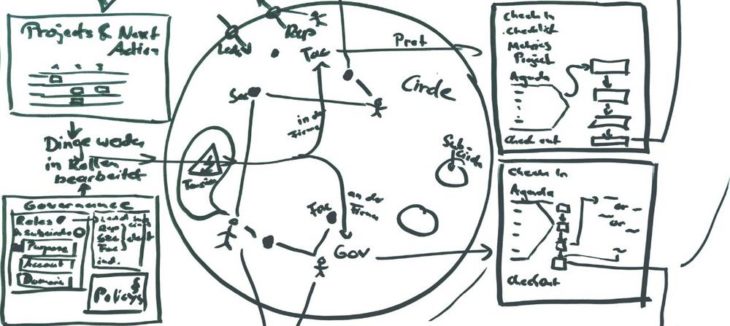 Projects & Next
Action
Dinge werden
in Rollen
bearbeitet
Governance
Roles
Purpose
Account
Domain
Lead
Rep
ind.
Policys
§
Lead
Rep
Tac
Prot
Circle
Sec
in der
Firma
Tension
an der
Firma
Sub
Circle
Gov
Check In
Checklist
Metrics
Project
Agenda
Check out
Check In
Agenda
or
or
Check out